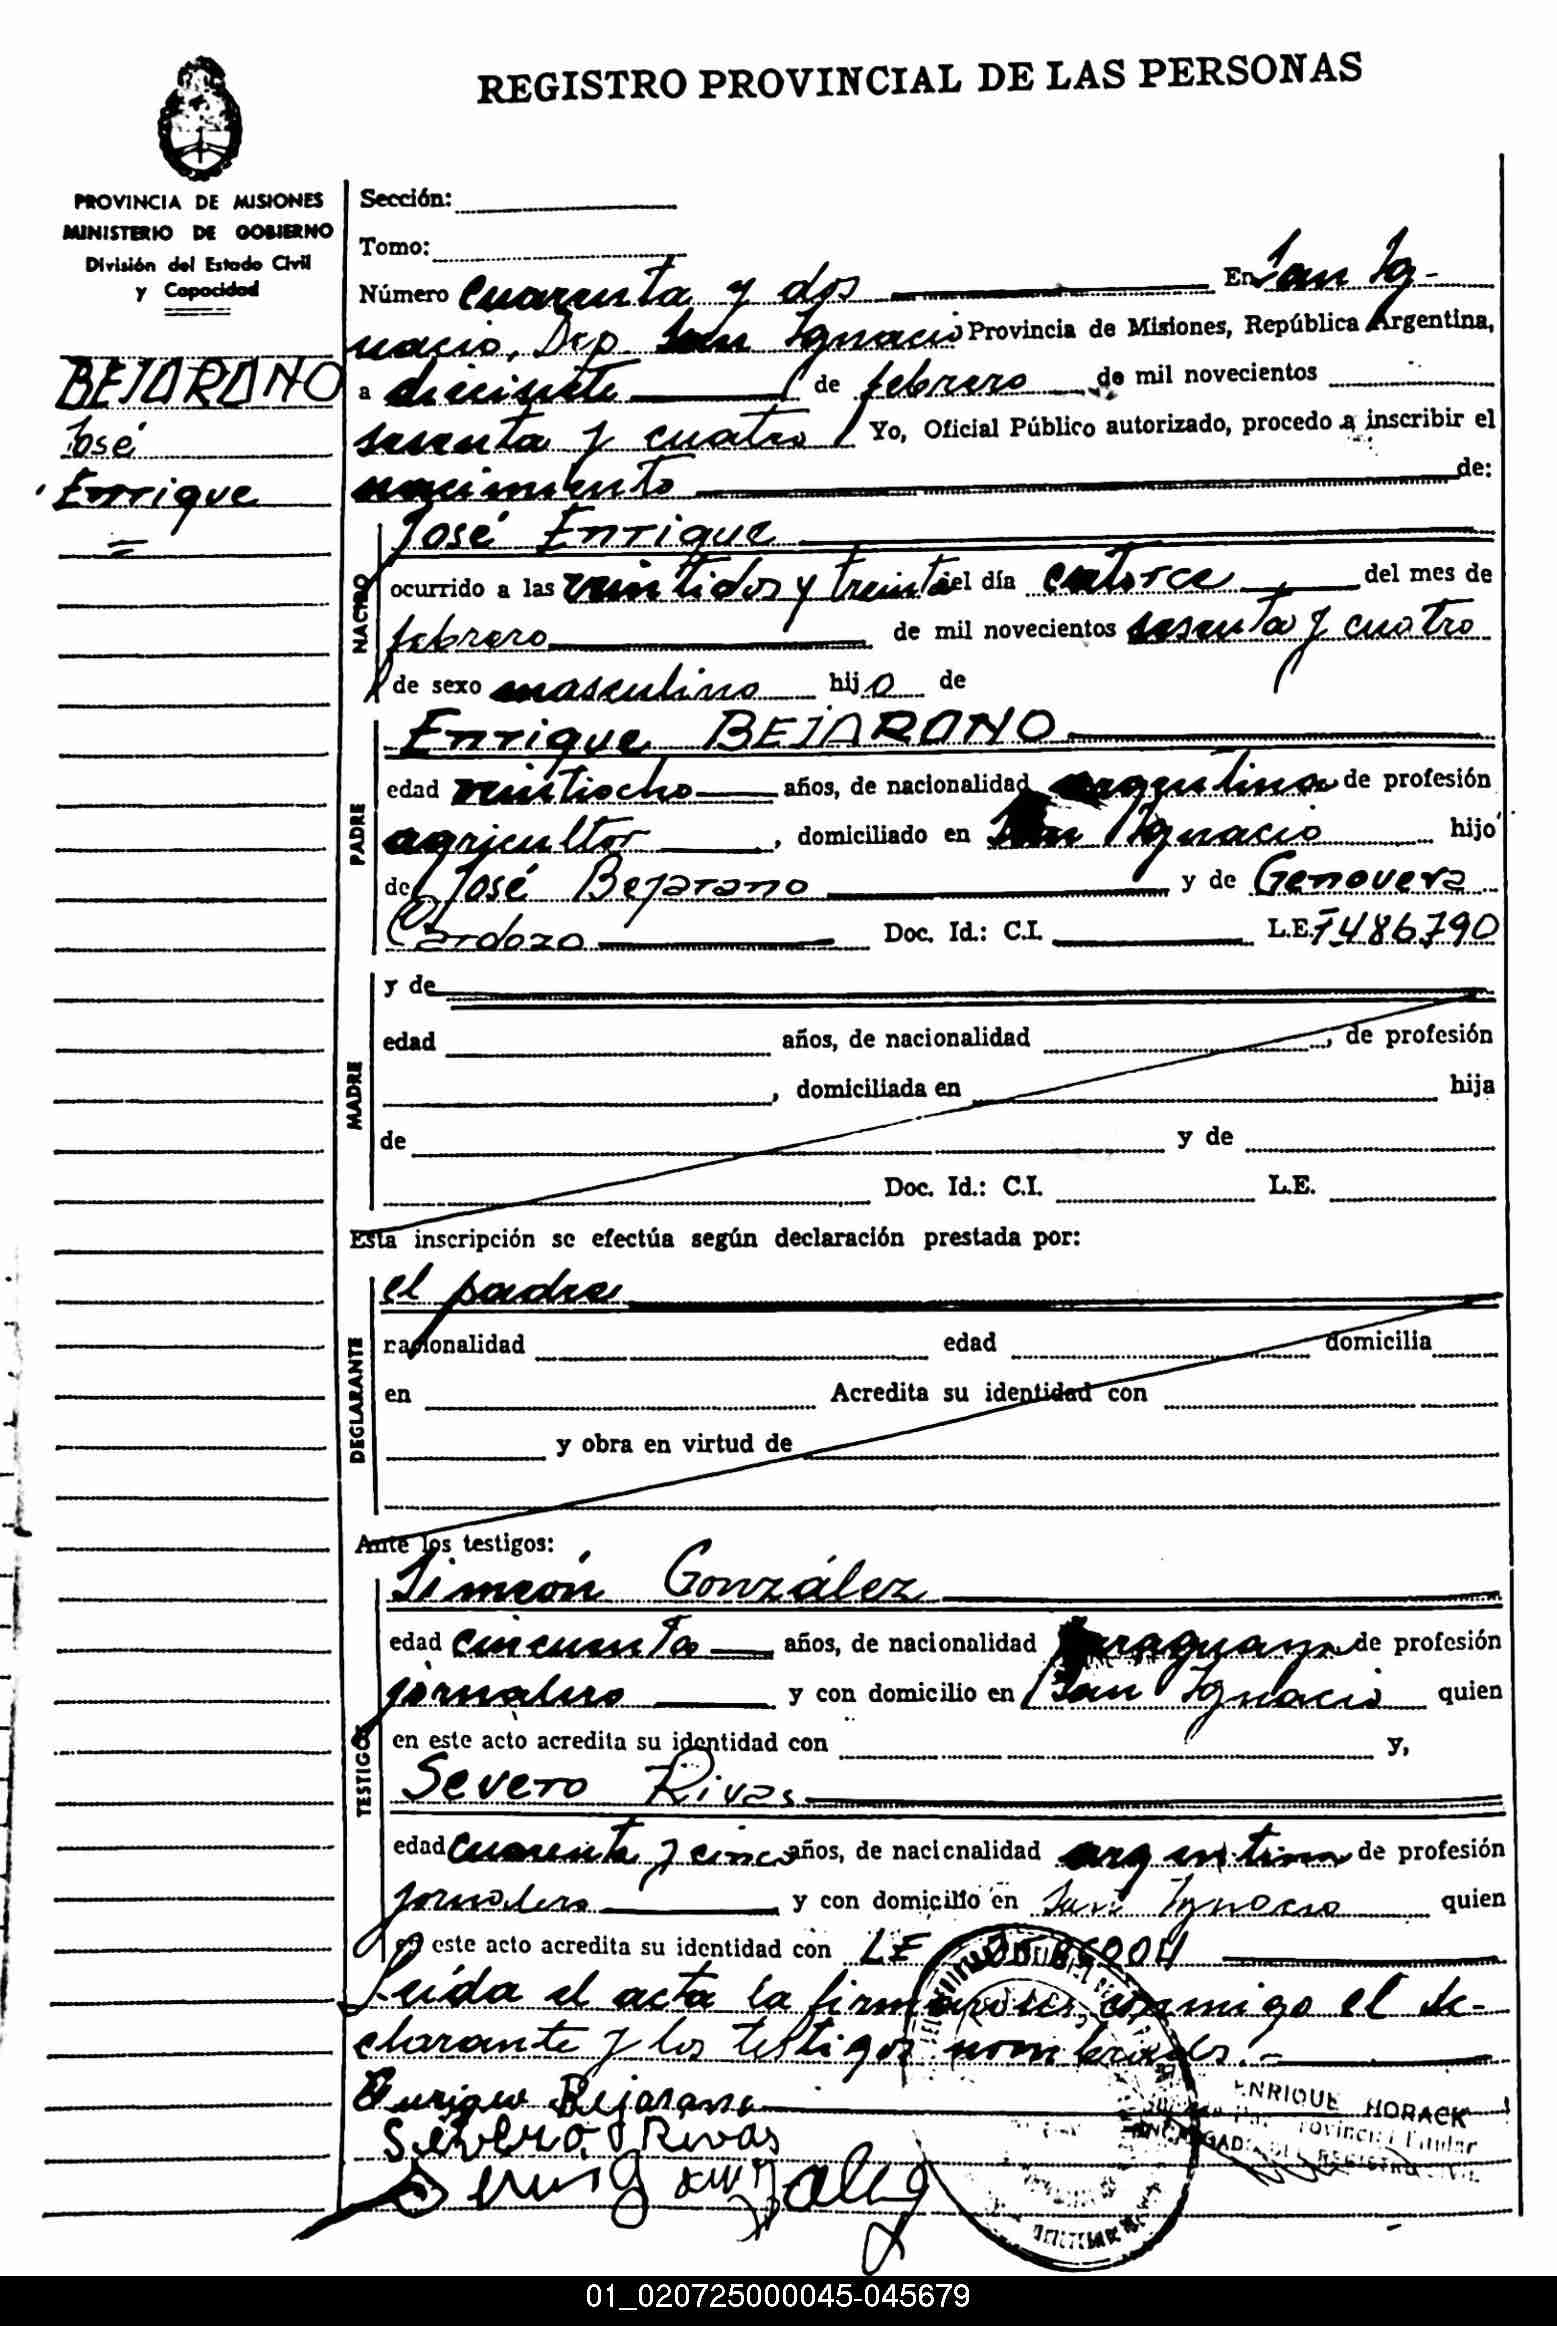 REGISTRO PROVINCIAL DE LAS PERSONAS
PROVINCIA DE MISIONES
MINISTERIO DE GOBIERNO
División del Estado Civil
y Capacidad
BEJARANO
José
Enrique
Sección:
Tomo:
Número cuarenta y dos En San Ig-
nacio, Dep. San Ignacio Provincia de Misiones, República Argentina,
a diecisiete de febrero de mil novecientos
sesenta y cuatro Yo, Oficial Público autorizado, procedo a inscribir el
nacimiento de:
NACIDO
José Enrique
ocurrido a las veintidos y treinta del día catorce del mes de
febrero de mil novecientos sesenta y cuatro
de sexo masculino hijo de
PADRE
Enrique BEJARANO
edad veintiocho años, de nacionalidad argentina de profesión
agricultor, domiciliado en San Ignacio hijo
de José Bejarano y de Genovera
Cardozo Doc. Id.: C.I. L.E. 7486790
MADRE
y de
edad años, de nacionalidad , de profesión
, domiciliada en hija
de y de
Doc. Id.: C.I. L.E.
Esta inscripción se efectúa según declaración prestada por:
DECLARANTE
el padre
nacionalidad edad domicilia
en Acredita su identidad con
y obra en virtud de
Ante los testigos:
TESTIGOS
Simeón González
edad cincuenta años, de nacionalidad paraguaya de profesión
jornalero y con domicilio en San Ignacio quien
en este acto acredita su identidad con y,
Severo Rivas
edad cuarenta y cinco años, de nacionalidad argentina de profesión
jornalero y con domicilio en San Ignacio quien
en este acto acredita su identidad con LE
Leída el acta la firman conmigo el de-
clarante y los testigos nombrados.-
Enrique Bejarano
Severo Rivas
ENRIQUE HORACK
01_020725000045-045679